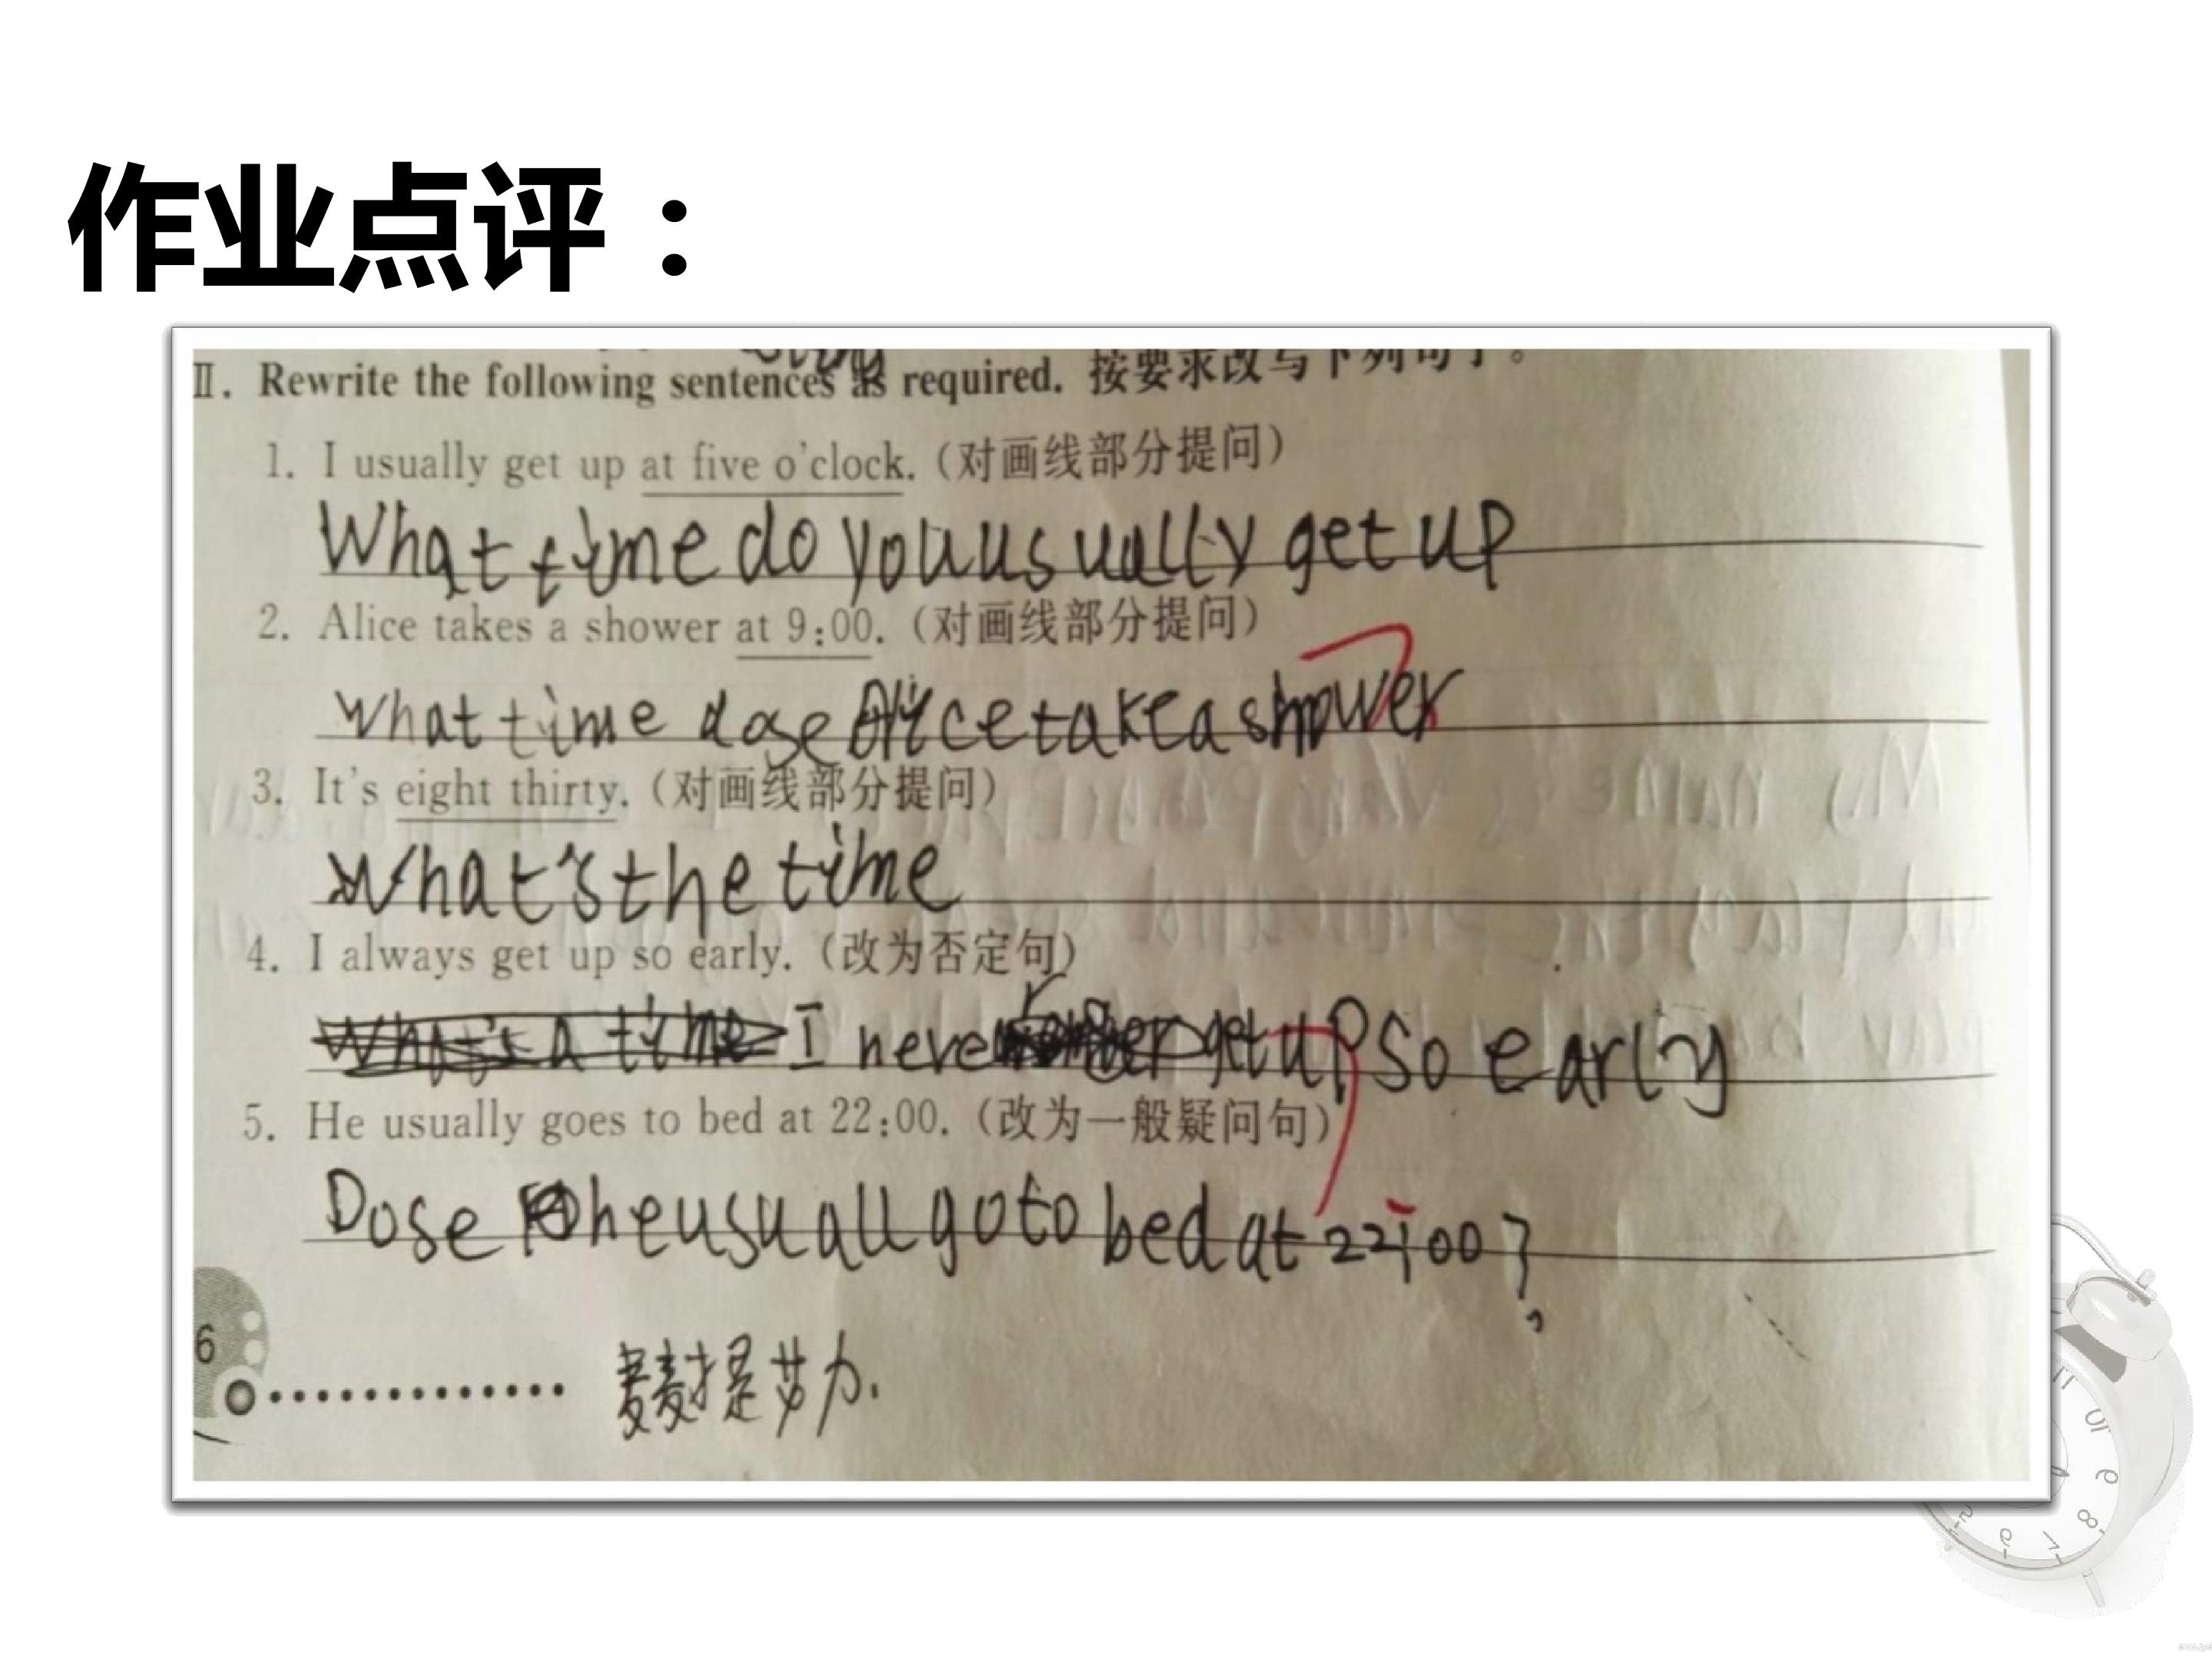 作业点评：
Ⅱ. Rewrite the following sentences as required. 按要求改写下列句子。
1. I usually get up at five o'clock.（对画线部分提问）
What time do you usually get up
2. Alice takes a shower at 9:00.（对画线部分提问）
What time dose Alice take a shower
3. It's eight thirty.（对画线部分提问）
What's the time
4. I always get up so early.（改为否定句）
What's a time I never get up so early
5. He usually goes to bed at 22:00.（改为一般疑问句）
Dose he usuall go to bed at 22:00?
6